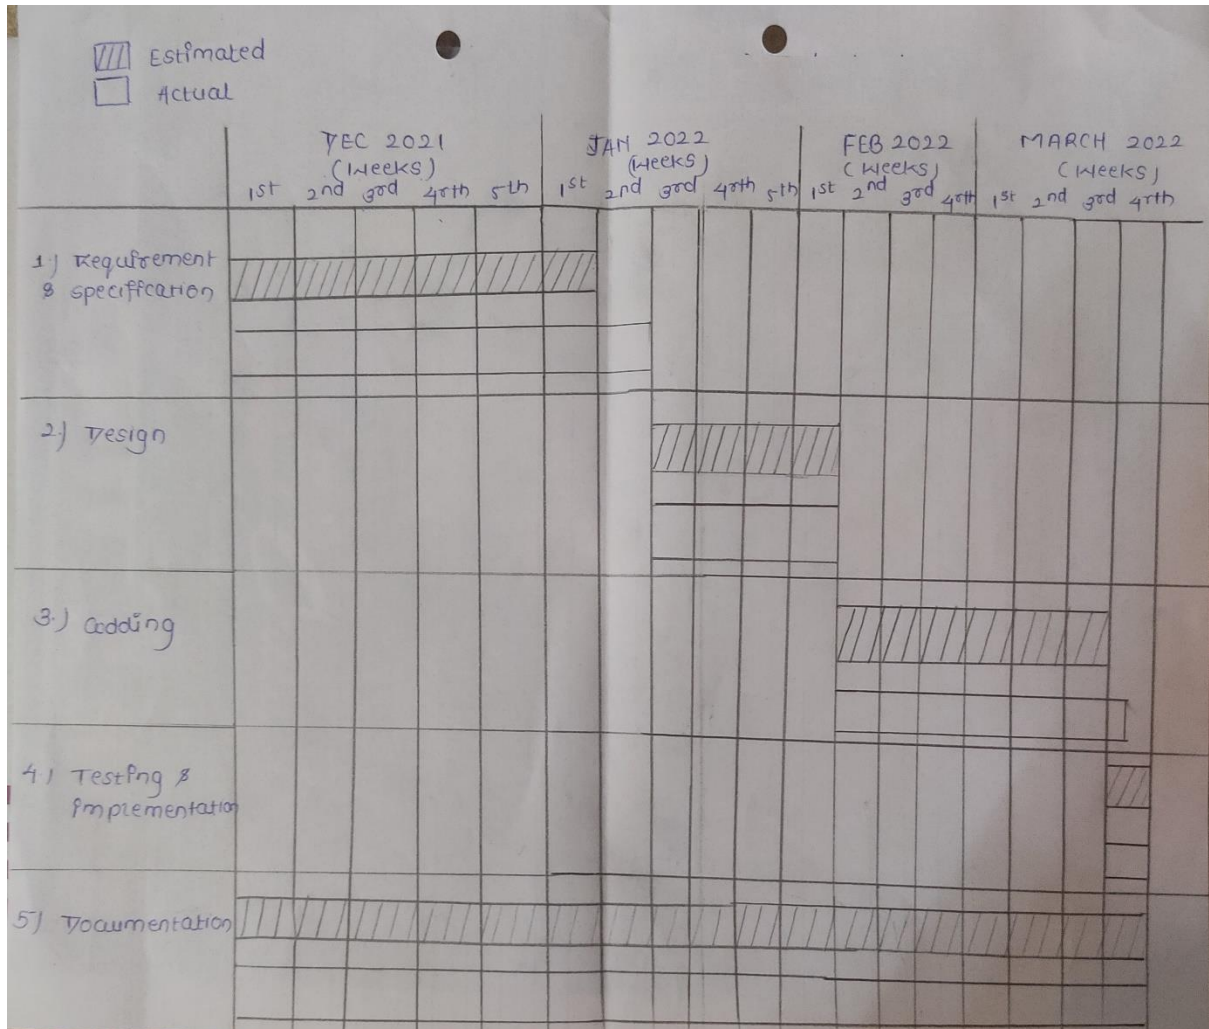 Estimated
Actual
DEC 2021
(Weeks)
1st 2nd 3rd 4rth 5th
JAN 2022
(Weeks)
1st 2nd 3rd 4rth 5th
FEB 2022
(Weeks)
1st 2nd 3rd 4rth
MARCH 2022
(Weeks)
1st 2nd 3rd 4rth
1.) Requirement
& specification
2.) Design
3.) Codding
4.) Testing &
implementation
5.) Documentation